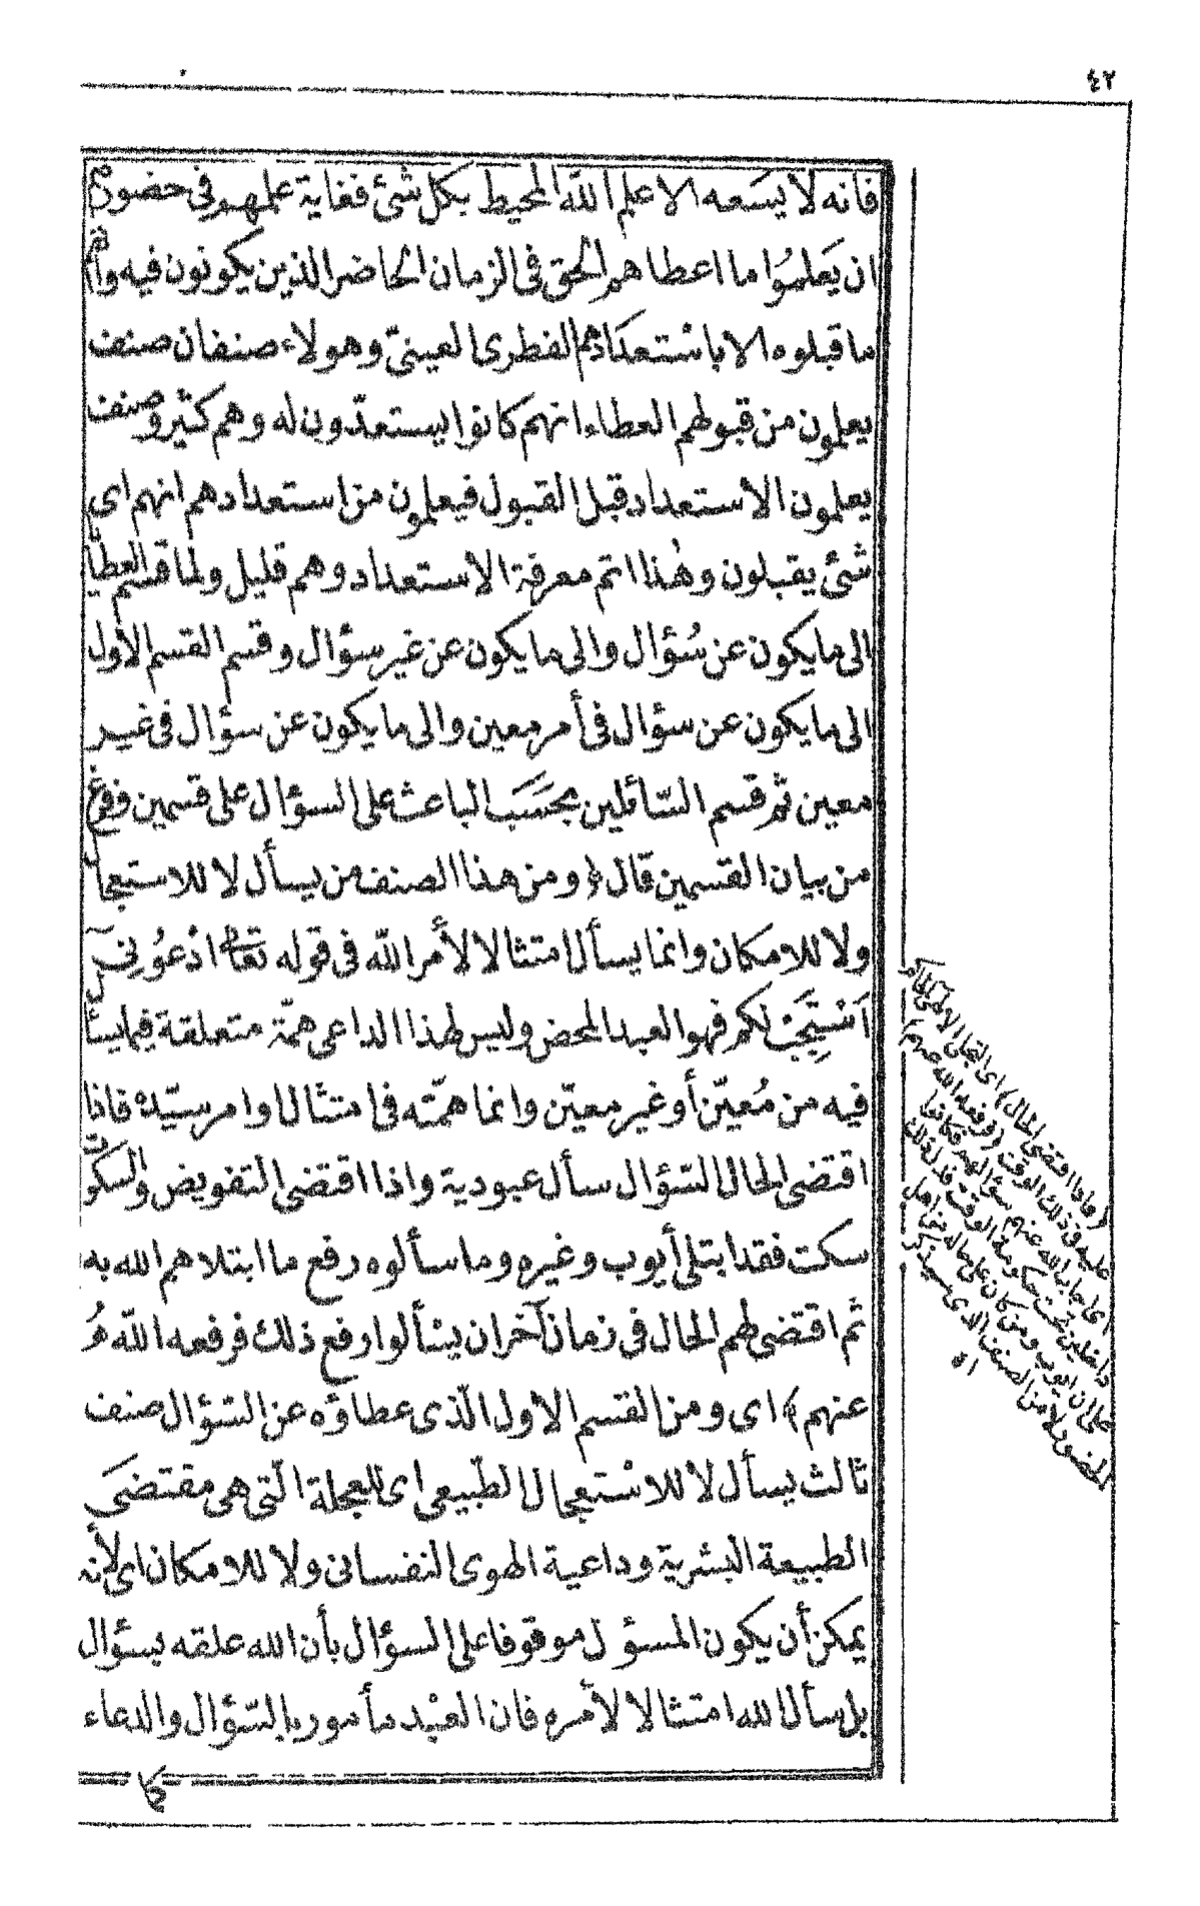 ٤٢
فانه لا يسَعه الا علم الله المحيط بكل شئ فغاية علمهم فى حضورهم
ان يَعلموُا ما اعطاهم الحق فى الزمان الحاضر الذين يكونون فيه وأنهم
ما قبلوه الا باسْتعدَادهم الفطرى العينىّ وهولاء صنفان صنف
يعلمون من قبولهم العطاء انهم كانوا يستعدّون له وهم كثير وصنف
يعلمون الاستعداد قبل القبول فيعلمون من استعدادهم انهم اى
شئ يقبلون وهٰذا اتم معرفة الاستعداد وهم قليل ولما قسم العطايا
الى ما يكون عن سُؤال والى ما يكون عن غير سؤال وقسم القسم الأول
الى ما يكون عن سؤال فى أمر معين والى ما يكون عن سؤال فى غير
معين ثم قسم السّائلين بحَسَب الباعث على السؤال على قسمين وفرغ
من بيان القسمين قال ﴿ ومن هذا الصنف من يسأل لا للاستعجال
ولا للامكان وانما يسأل امتثالا لأمر الله فى قوله تعالى ادْعوُنِىٓ
اَسْتَجِبْ لكم فهو العبد المحض وليس لهذا الداعى همّة متعلقة فيما يسأل
فيه من مُعيّن أو غير معيّن وانما همّته فى امتثال اوامر سيّده فاذا
اقتضى الحال السّؤال سأل عبودية واذا اقتضى التفويض والسكوت
سكت فقد ابتلى أيوب وغيره وما سألوه رفع ما ابتلاهم الله به
ثم اقتضى لهم الحال فى زمان آخر ان يسْألوا رفع ذلك فرفعه اللّه هُ
عنهم ﴾ اى ومن القسم الاول الّذى عطاؤه عن السّؤال صنف
ثالث يسأل لا للاسْتعجال الطّبيعى اى للعجلة الّتى هى مقتضَى
الطبيعة البشرية وداعية الهوى النفسانى ولا للامكان اى لأنه
يمكن أن يكون المسؤل موقوفا على السؤال بأن الله علقه بسؤال
بل سأل الله امتثالا لأمره فان العبْد مأمور بالسّؤال والدعاء
كا
(فاذا اقتضى الحال) اى التجأ
عليه فى ذلك الوقت (فرفعه الله عنهم)
اى اجاب الله عنهم سؤالهم فكانوا
داخلين تحت حكومة الوقت
ايوب ومن كان على حاله من اهل
من الصنف الذى سيذكر
اه